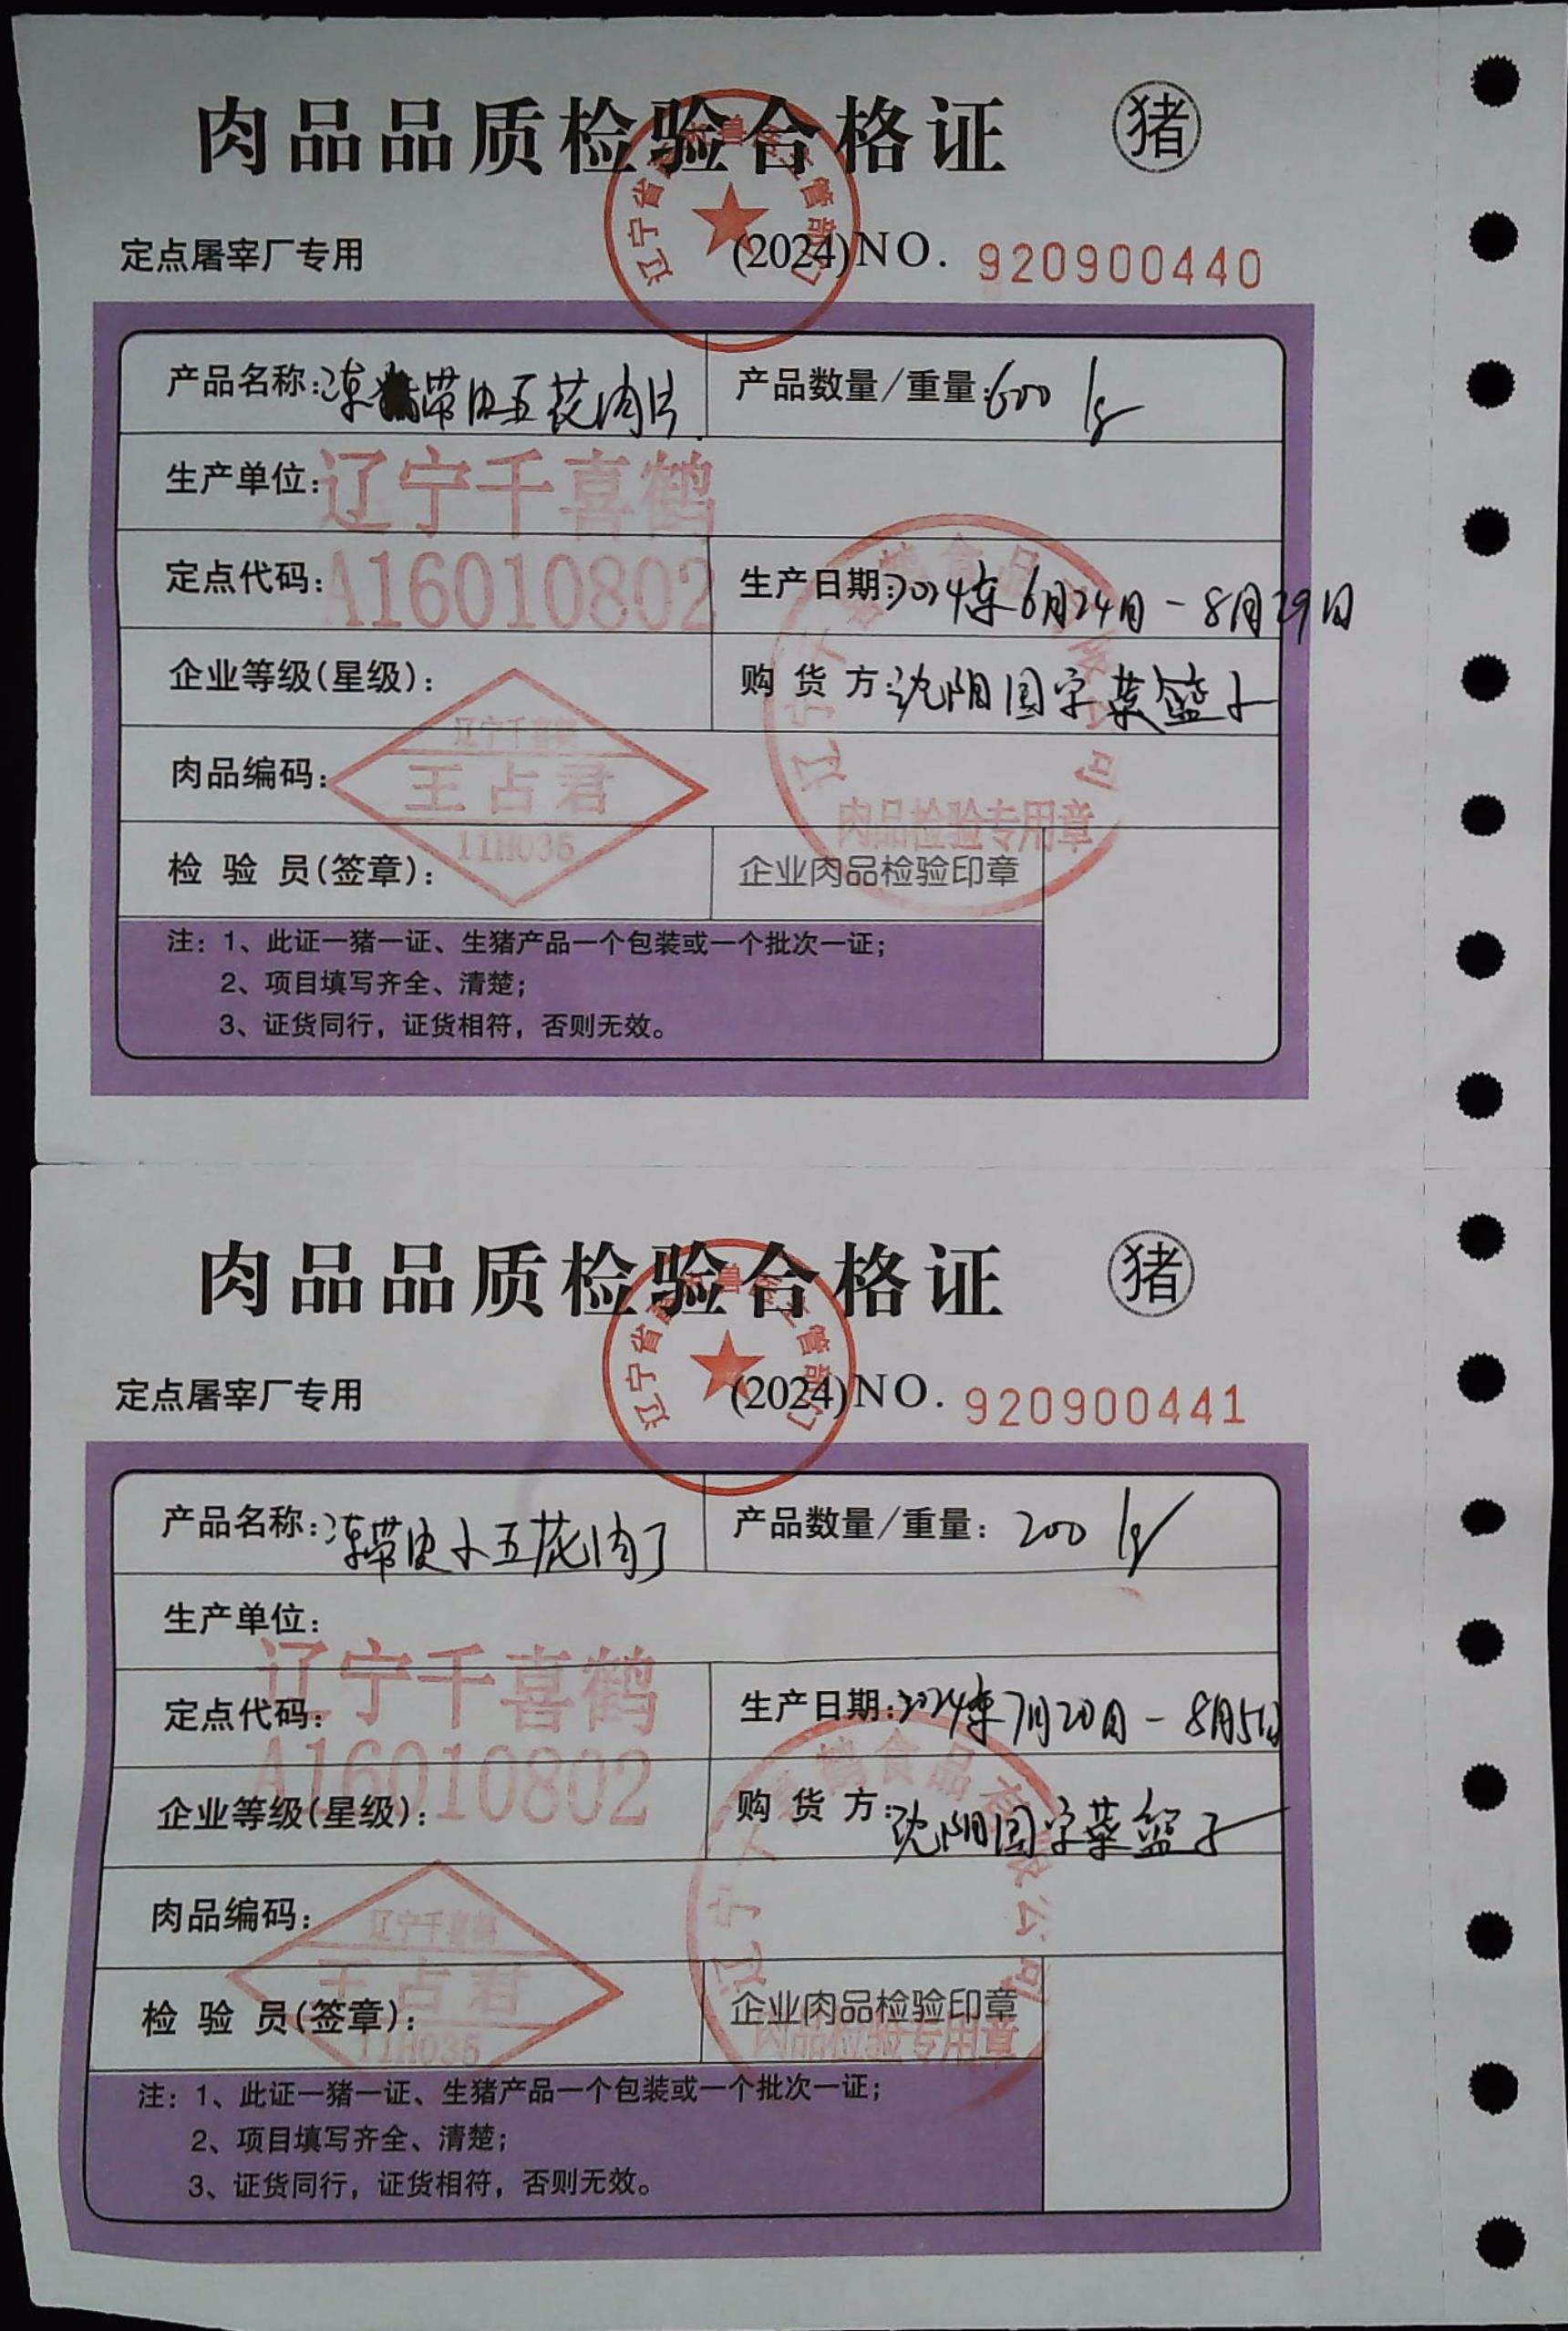 肉品品质检验合格证 猪
定点屠宰厂专用 (2024)NO. 920900440
产品名称:冻带皮五花肉片 产品数量/重量:600 kg
生产单位:辽宁千喜鹤
定点代码:A16010802 生产日期:2024年6月24日-8月29日
企业等级(星级): 购货方:沈阳国宇菜篮子
肉品编码:
辽宁千喜鹤
王占君
11H035
检验员(签章): 企业肉品检验印章
肉品检验专用章
注:1、此证一猪一证、生猪产品一个包装或一个批次一证;
2、项目填写齐全、清楚;
3、证货同行,证货相符,否则无效。
肉品品质检验合格证 猪
定点屠宰厂专用 (2024)NO. 920900441
产品名称:冻带皮小五花肉丁 产品数量/重量:200 kg
生产单位:
辽宁千喜鹤
定点代码: 生产日期:2024年7月20日-8月5日
A16010802
企业等级(星级): 购货方:沈阳国宇菜篮子
肉品编码:
辽宁千喜鹤
王占君
11H035
检验员(签章): 企业肉品检验印章
肉品检验专用章
注:1、此证一猪一证、生猪产品一个包装或一个批次一证;
2、项目填写齐全、清楚;
3、证货同行,证货相符,否则无效。